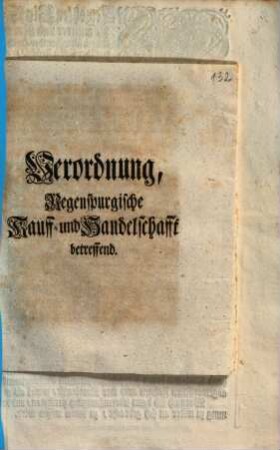 132
Verordnung,
Regenspurgische
Kauff- und Handelschafft
betreffend.